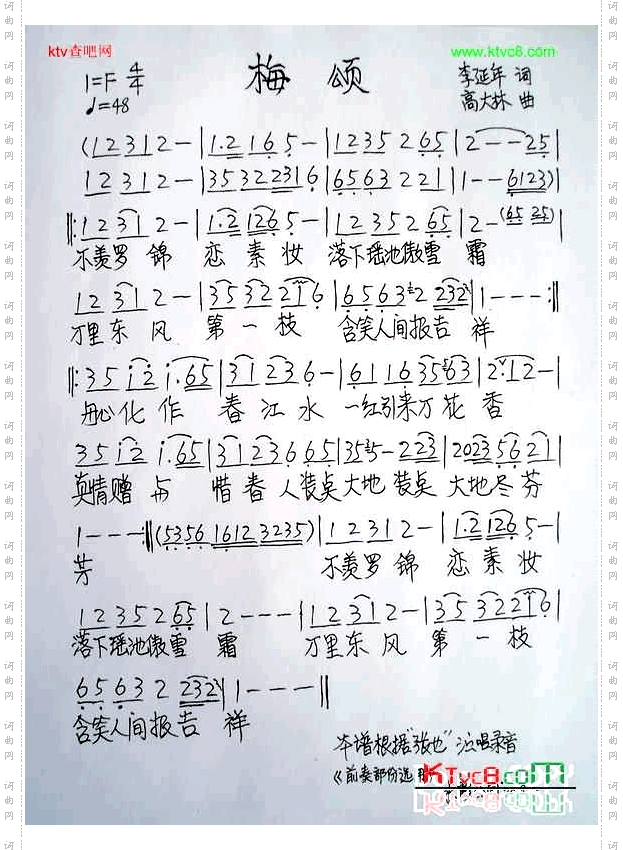 ktv查吧网 www.ktvc8.com
梅 颂
1=F 4/4
♩=48
李延年 词
高大林 曲
(1 2 3 1 2 - | 1·2 1 6 5 - | 1 2 3 5 2 6 5 | 2 - - 2 5 |
1 2 3 1 2 - | 3 5 3 2 2 3 1 6 | 6 5 6 3 2 2 1 | 1 - - 6 1 2 3) |
‖: 1 2 3 1 2 - | 1·2 1 2 6 5 - | 1 2 3 5 2 6 5 | 2 - (6 5 2 5) |
不羡罗 锦 恋 素 妆 落下瑶池傲雪 霜
1 2 3 1 2 - | 3 5 3 2 2 1 6 | 6 5 6 3 2 2 3 2 | 1 - - - :‖
万里东 风 第 一 枝 含笑人间报吉 祥
‖: 3 5 i 2 i· 6 5 | 3 1 2 3 6 - | 6 1 1 6 3 5 6 3 | 2 · 1 2 - |
丹心化 作 春 江 水 一红引来万 花 香
3 5 i 2 i· 6 5 | 3 1 2 3 6 6 5 | 3 5 - 2 2 3 | 2 0 2 3 5 6 2 1 |
真情赠 与 惜 春 人装点大地 装点 大地尽芬
1 - - - :‖ (5 3 5 6 1 6 1 2 3 2 3 5) | 1 2 3 1 2 - | 1·2 1 2 6 5 - |
芳 不羡罗 锦 恋 素 妆
1 2 3 5 2 6 5 | 2 - - - | 1 2 3 1 2 - | 3 5 3 2 2 1 6 |
落下瑶池傲雪 霜 万里东 风 第 一 枝
6 5 6 3 2 2 3 2 | 1 - - - ‖
含笑人间报吉 祥
本谱根据"张也"演唱录音
《前奏部份选用
KTvc8.com
词曲网